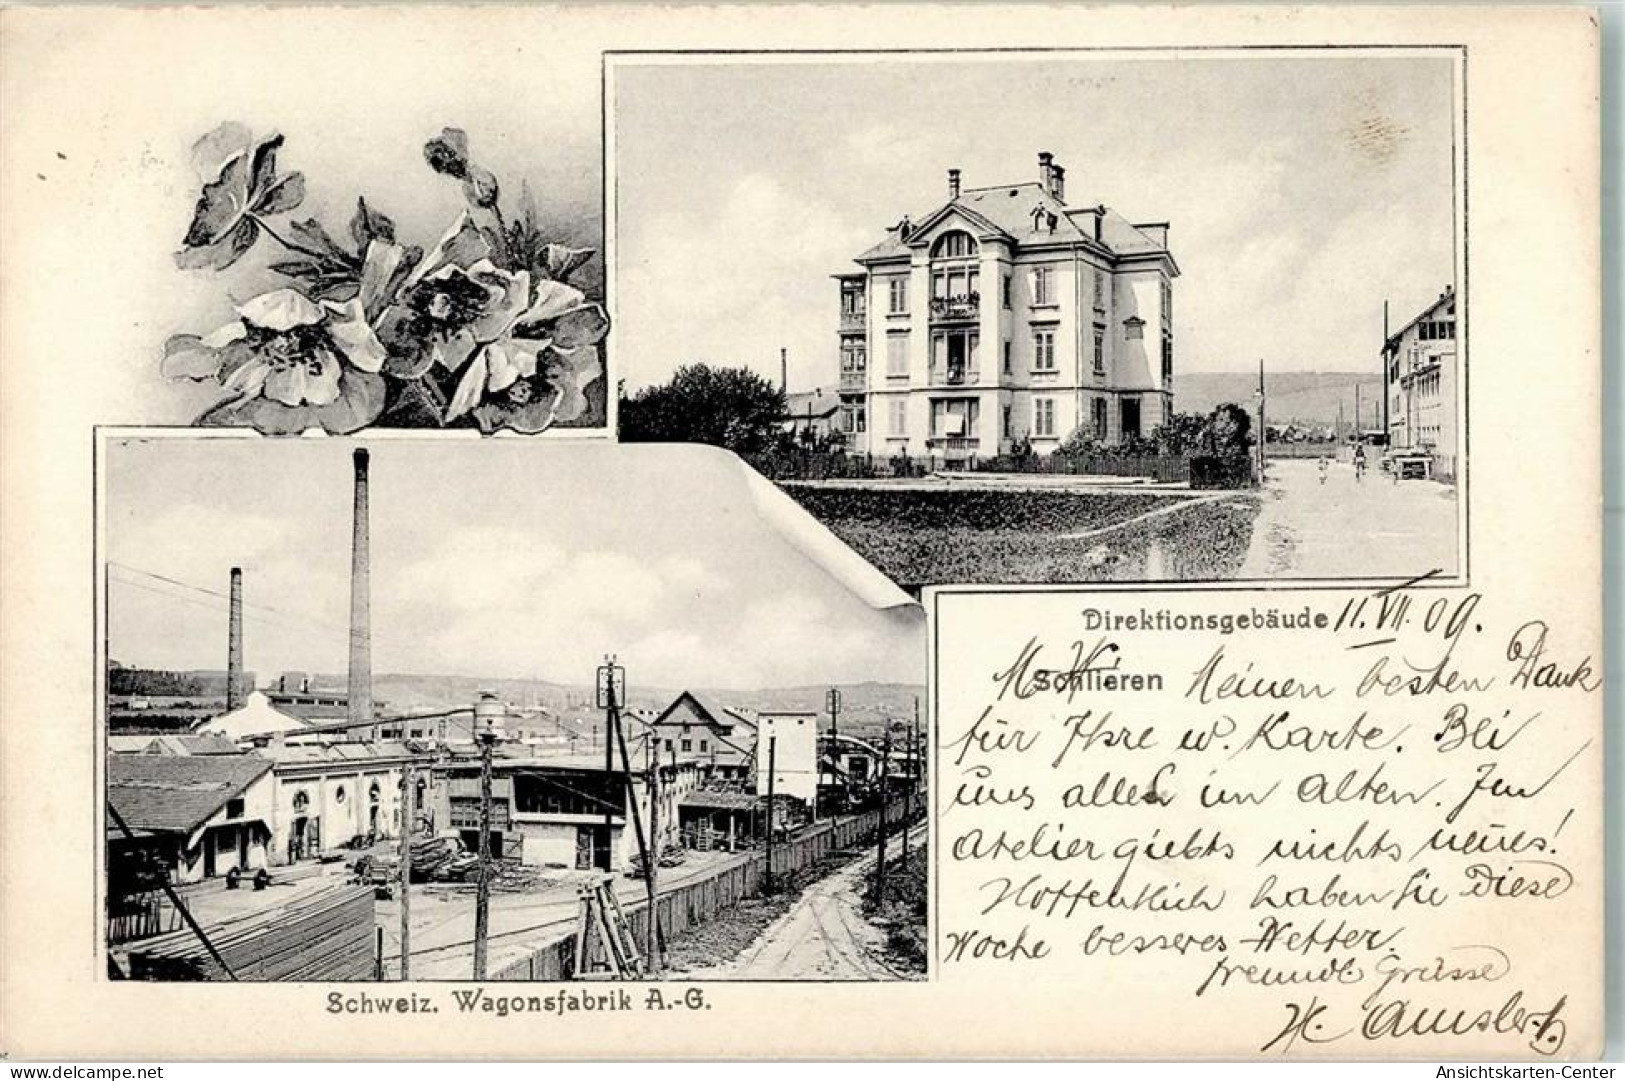 Direktionsgebäude 11. VII. 09.
Schlieren Meinen besten Dank
für Ihre w. Karte. Bei
uns alles im Alten. Im
Atelier giebts nichts neues!
Hoffentlich haben Sie Diese
Woche besseres Wetter.
freundl. Grüsse
H. Amsler
Schweiz. Wagonsfabrik A.-G.
Ansichtskarten-Center